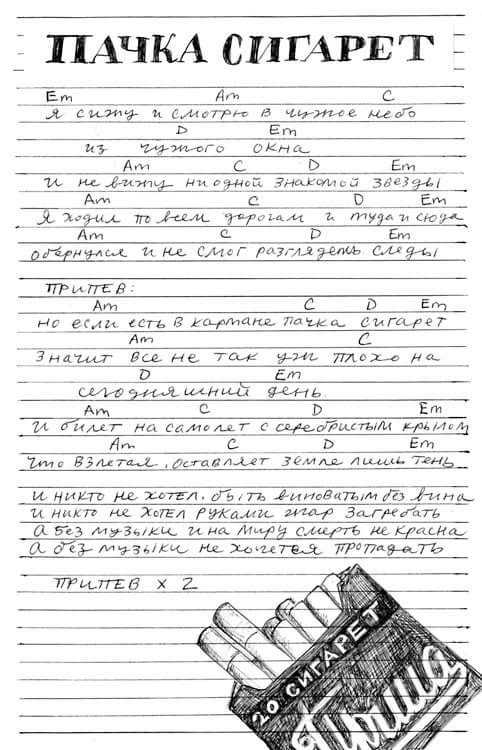 ПАЧКА СИГАРЕТ
Em Am C
Я сижу и смотрю в чужое небо
D Em
из чужого окна
Am C D Em
И не вижу ни одной знакомой звезды
Am C D Em
Я ходил по всем дорогам и туда и сюда
Am C D Em
обернулся и не смог разглядеть следы
ПРИПЕВ:
Am C D Em
но если есть в кармане пачка сигарет
Am C
Значит все не так уж плохо на
D Em
сегодняшний день.
Am C D Em
И билет на самолет с серебристым крылом
Am C D Em
что взлетая, оставляет земле лишь тень
И никто не хотел быть виноватым без вина
И никто не хотел руками жар загребать
А без музыки и на миру смерть не красна
А без музыки не хочется пропадать
ПРИПЕВ x 2
20 СИГАРЕТ
Прима